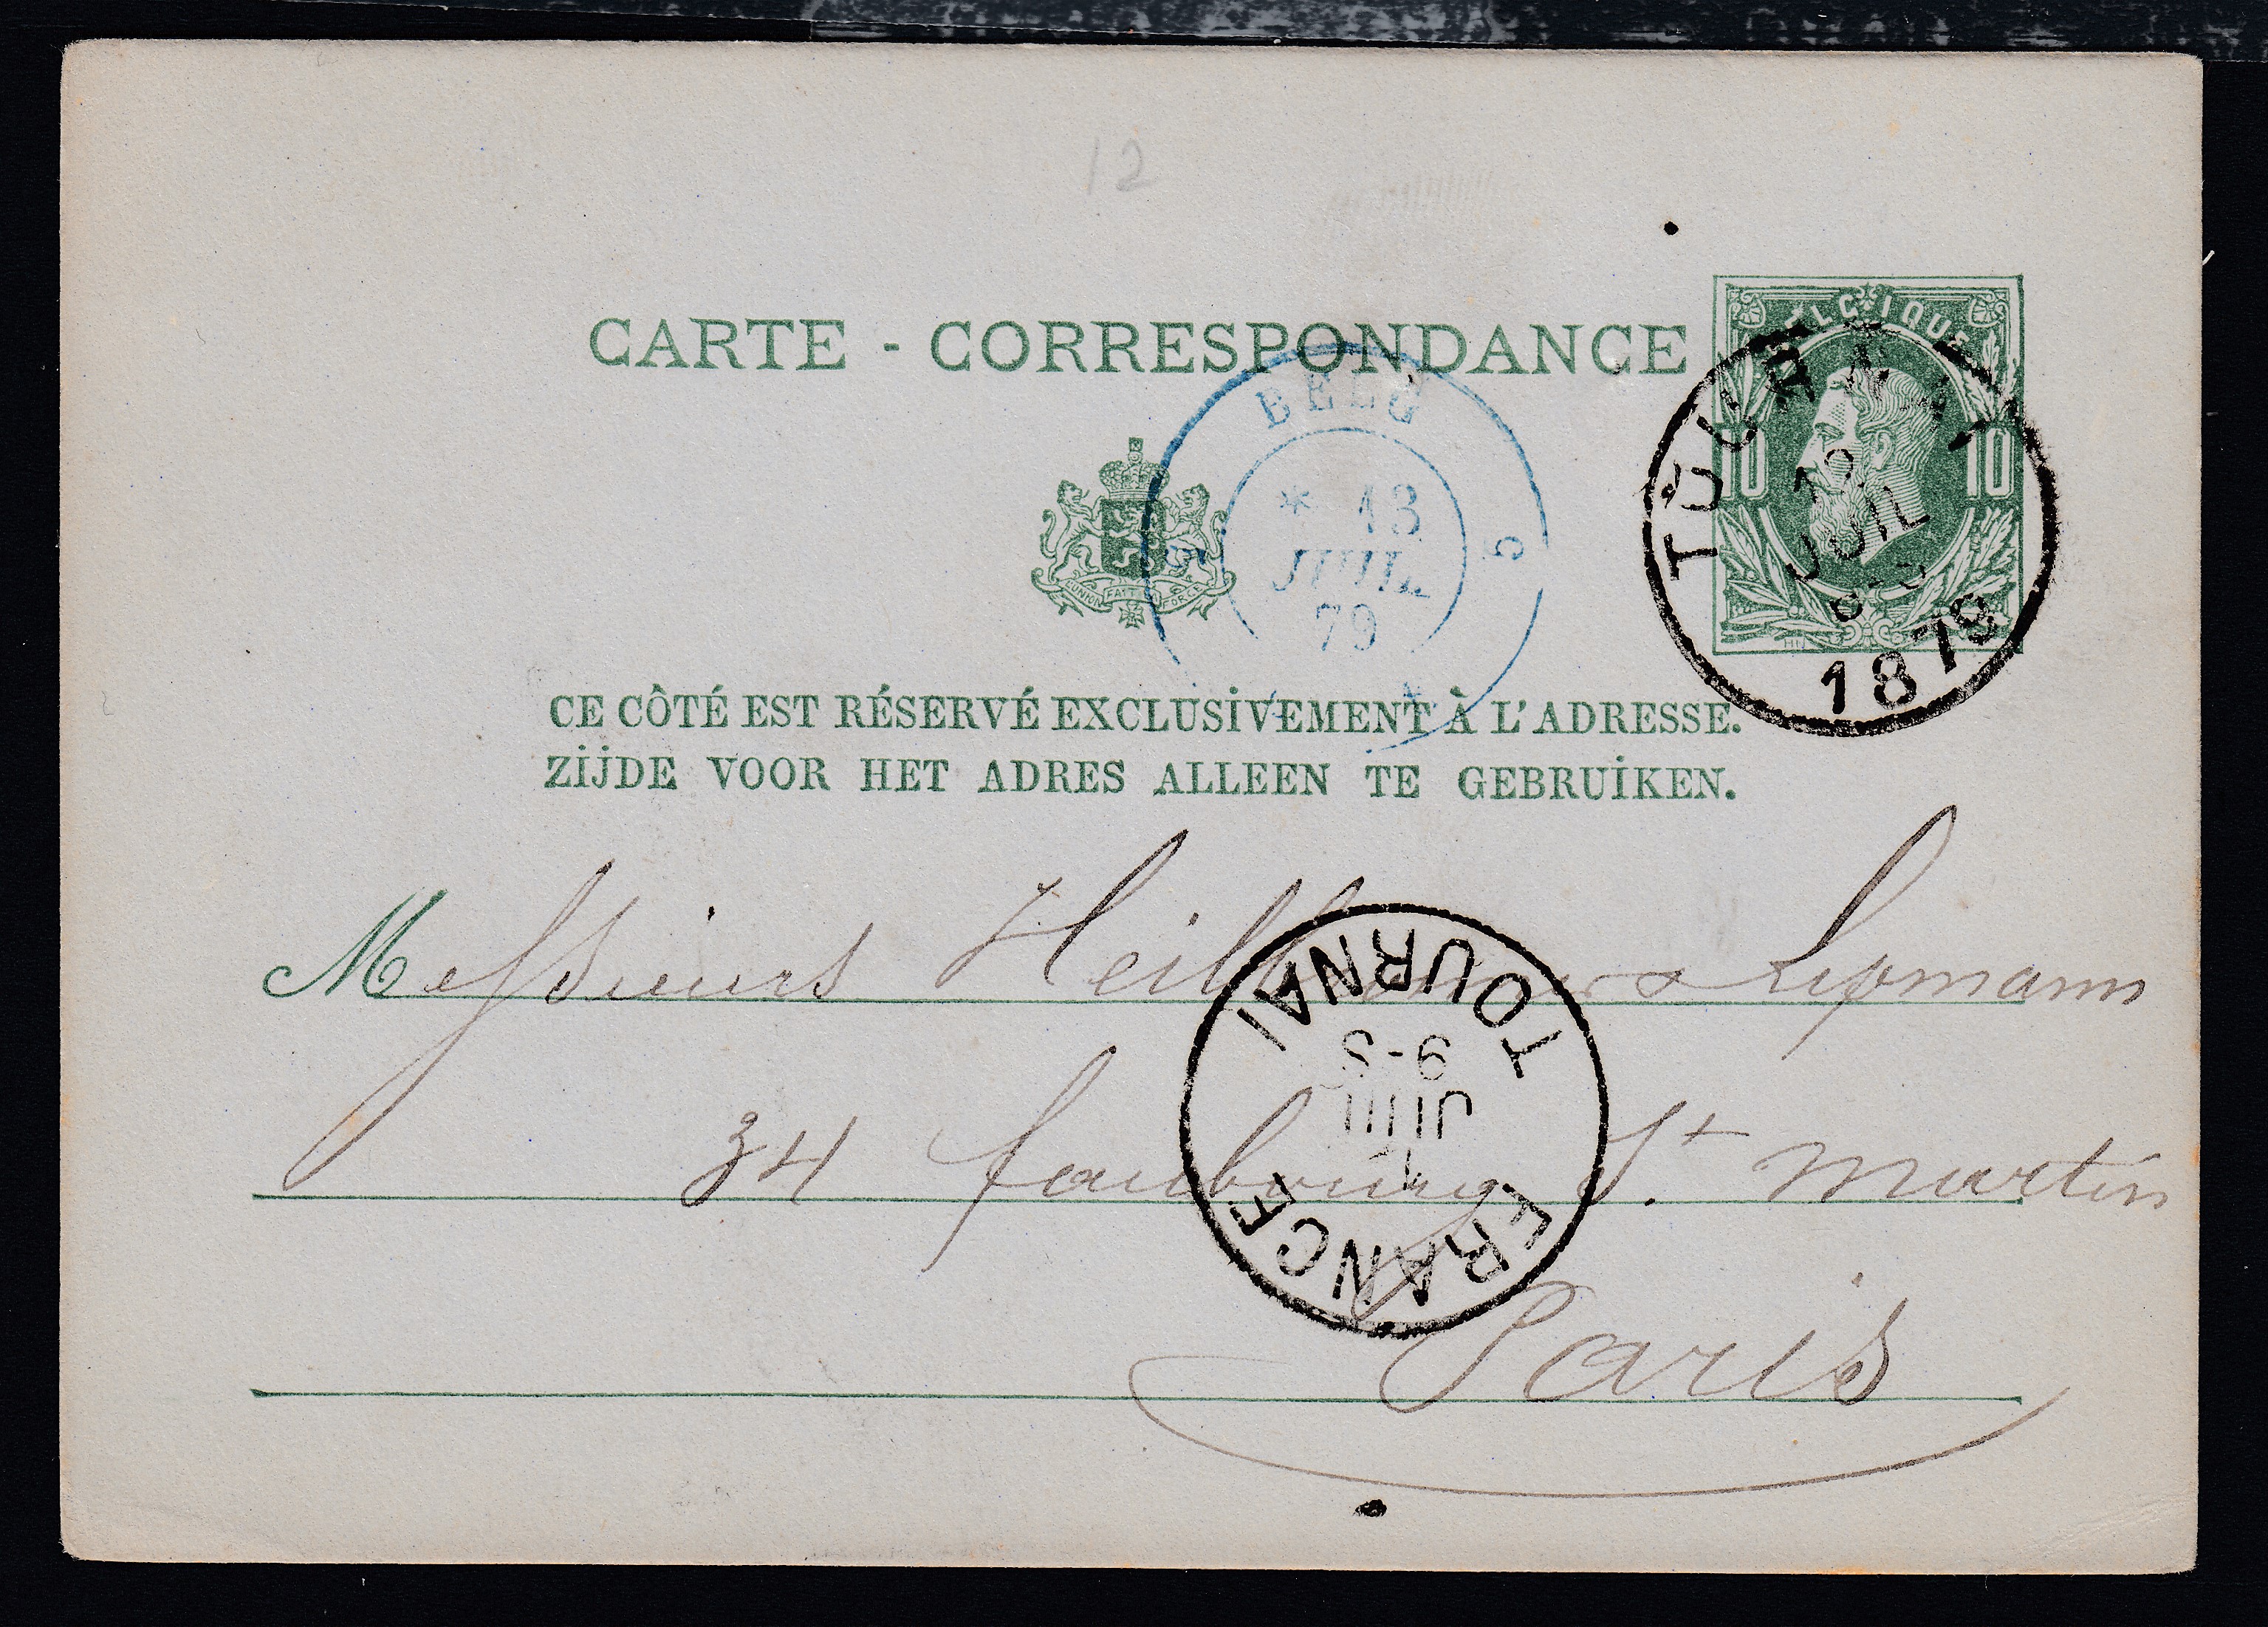 12
CARTE - CORRESPONDANCE
BELGIQUE
10 10
TOURNAI
12
JUIL
1879
BELG
* 13
JUIL.
79
5 5
L'UNION FAIT LA FORCE
CE CÔTÉ EST RÉSERVÉ EXCLUSIVEMENT À L'ADRESSE.
ZIJDE VOOR HET ADRES ALLEEN TE GEBRUIKEN.
Messieurs & Lipmann
TOURNAI
9-S
JUIL
FRANCE
34 faubourg St. Martin
Paris